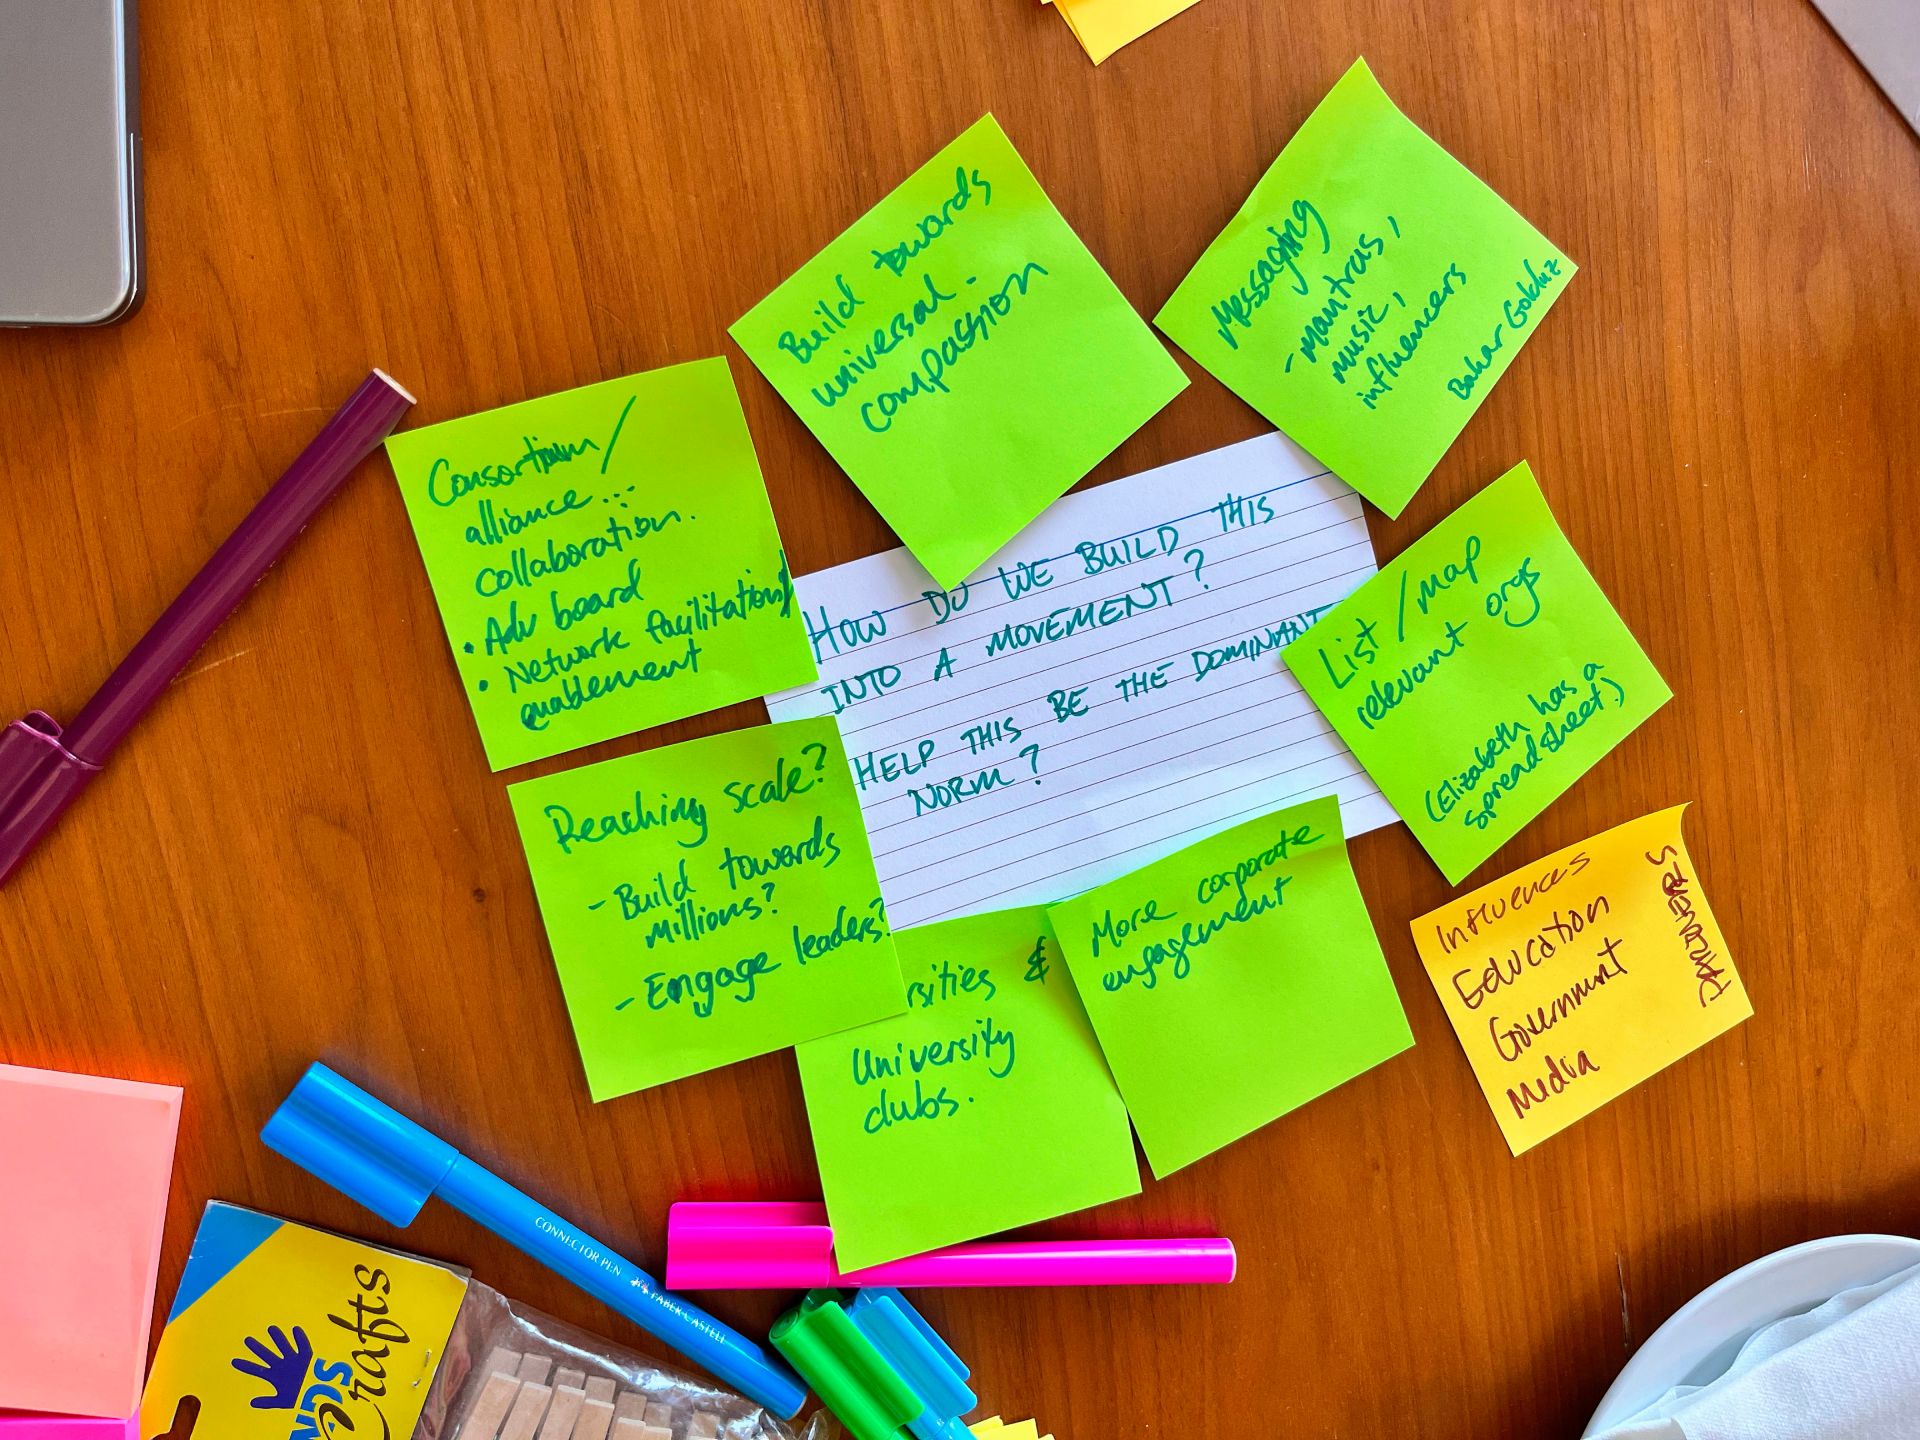 Build towards
universal
compassion
Messaging
- mantras,
music,
influencers
Consortium/
alliance...
collaboration.
• Adv board
• Network facilitation/
enablement
HOW DO WE BUILD THIS
INTO A MOVEMENT?
HELP THIS BE THE DOMINANT
NORM?
List / map
relevant orgs
(Elizabeth has a
spreadsheet)
Reaching scale?
- Build towards
millions?
- Engage leaders?
rsities &
University
clubs.
More corporate
engagement
Influences
Education
Government
Media
CONNECTOR PEN FABER-CASTELL
crafts